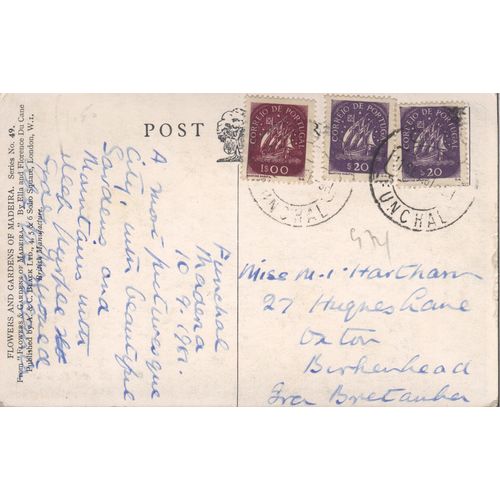 FLOWERS AND GARDENS OF MADEIRA. Series No. 49.
From "FLOWERS & GARDENS OF MADEIRA." By Ella and Florence Du Cane
Published by A. & C. BLACK, LTD., 4, 5 & 6 Soho Square, London, W.1.
British Manufacture
POST
CORREIO DE PORTUGAL
1$00
CORREIO DE PORTUGAL
$20
CORREIO DE PORTUGAL
$20
FUNCHAL
FUNCHAL
Funchal
Madeira
10.9.1951.
A most picturesque
City, with beautiful
Gardens and
Mountains with
steep
Miss M. I. Hartharn
27 Hughes Lane
Oxton
Birkenhead
Gra Bretanha